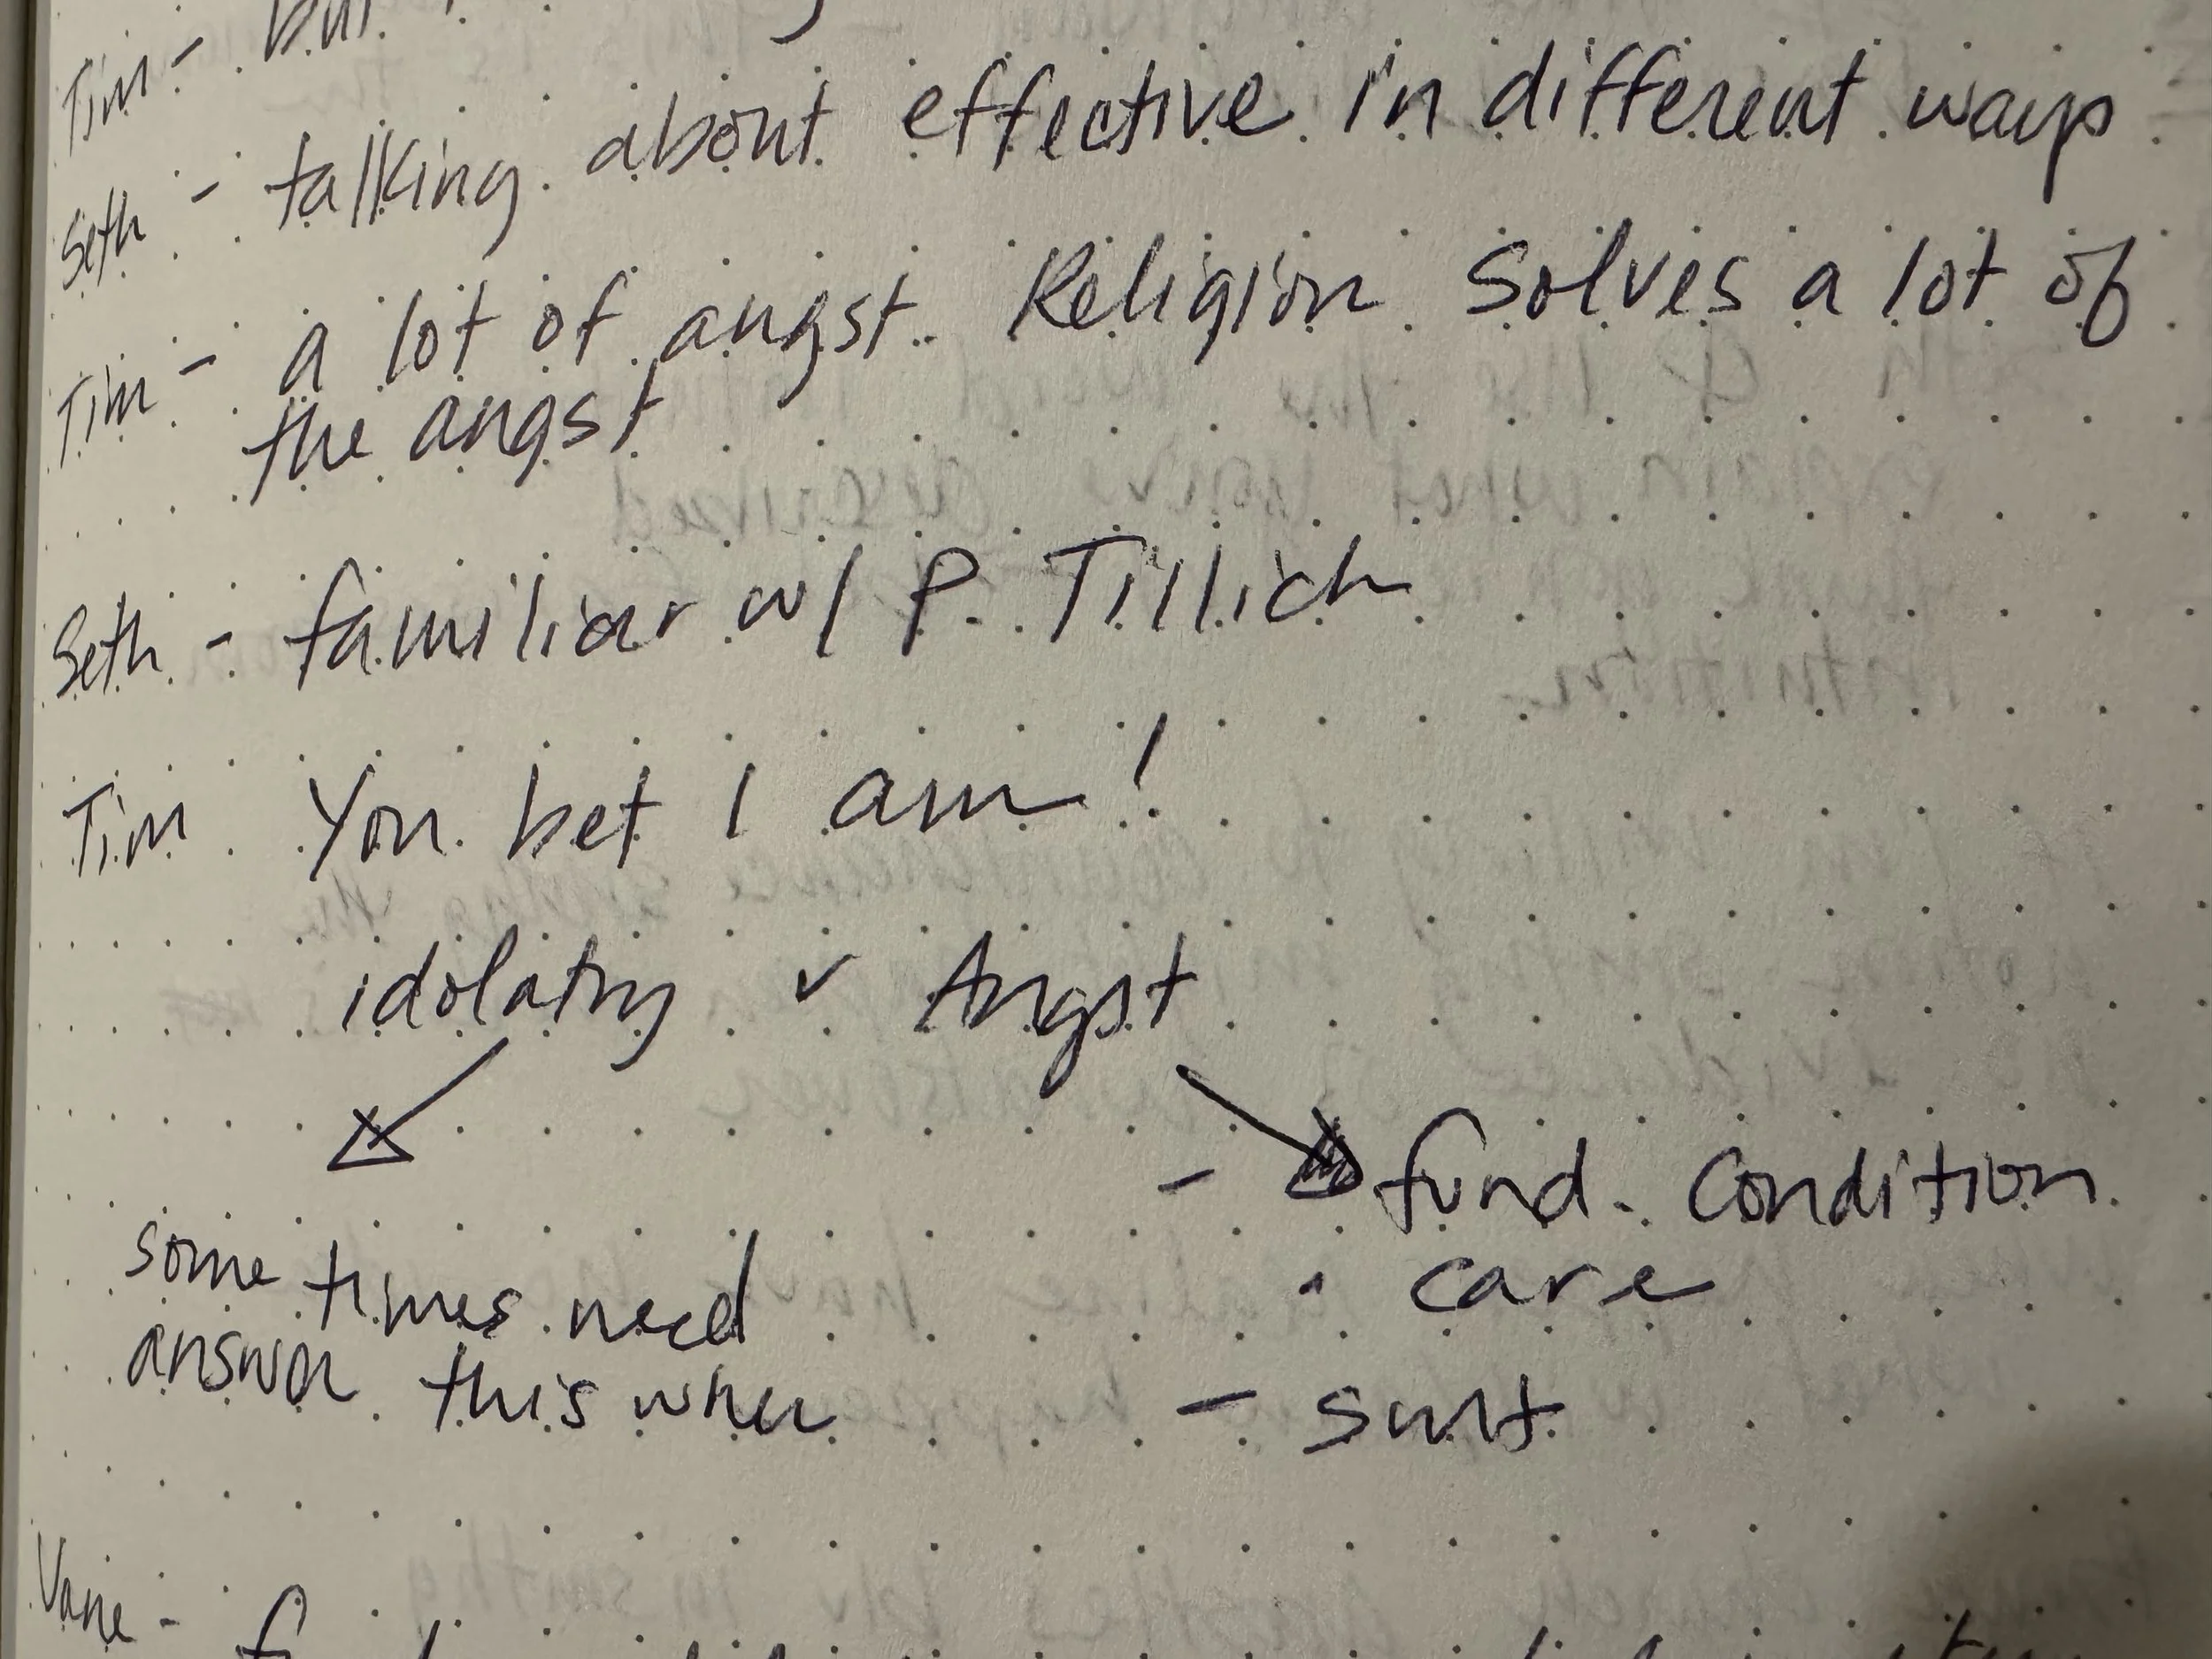 Tim - but
Seth - talking about effective in different ways
Tim - a lot of angst. Religion solves a lot of
the angst
Seth - familiar w/ P. Tillich
Tim You bet I am!
idolatry v Angst
- fund. Condition
some times need
care
answer this when
-
Vane -